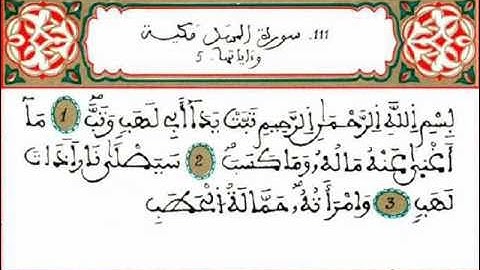 111. سورة المسد مكية
وءاياتها 5
بِسْمِ اِ۬للَّهِ اِ۬لرَّحْمَٰنِ اِ۬لرَّحِيمِ تَبَّتْ يَدَآ أَبِے لَهَبٖ وَتَبَّۖ 1 مَآ
أَغْنَىٰ عَنْهُ مَالُهُۥ وَمَا كَسَبَۖ 2 سَيَصْلَىٰ نَاراٗ ذَاتَ
لَهَبٖ 3 وَامْرَأَتُهُۥ حَمَّالَةُ اُ۬لْحَطَبِ